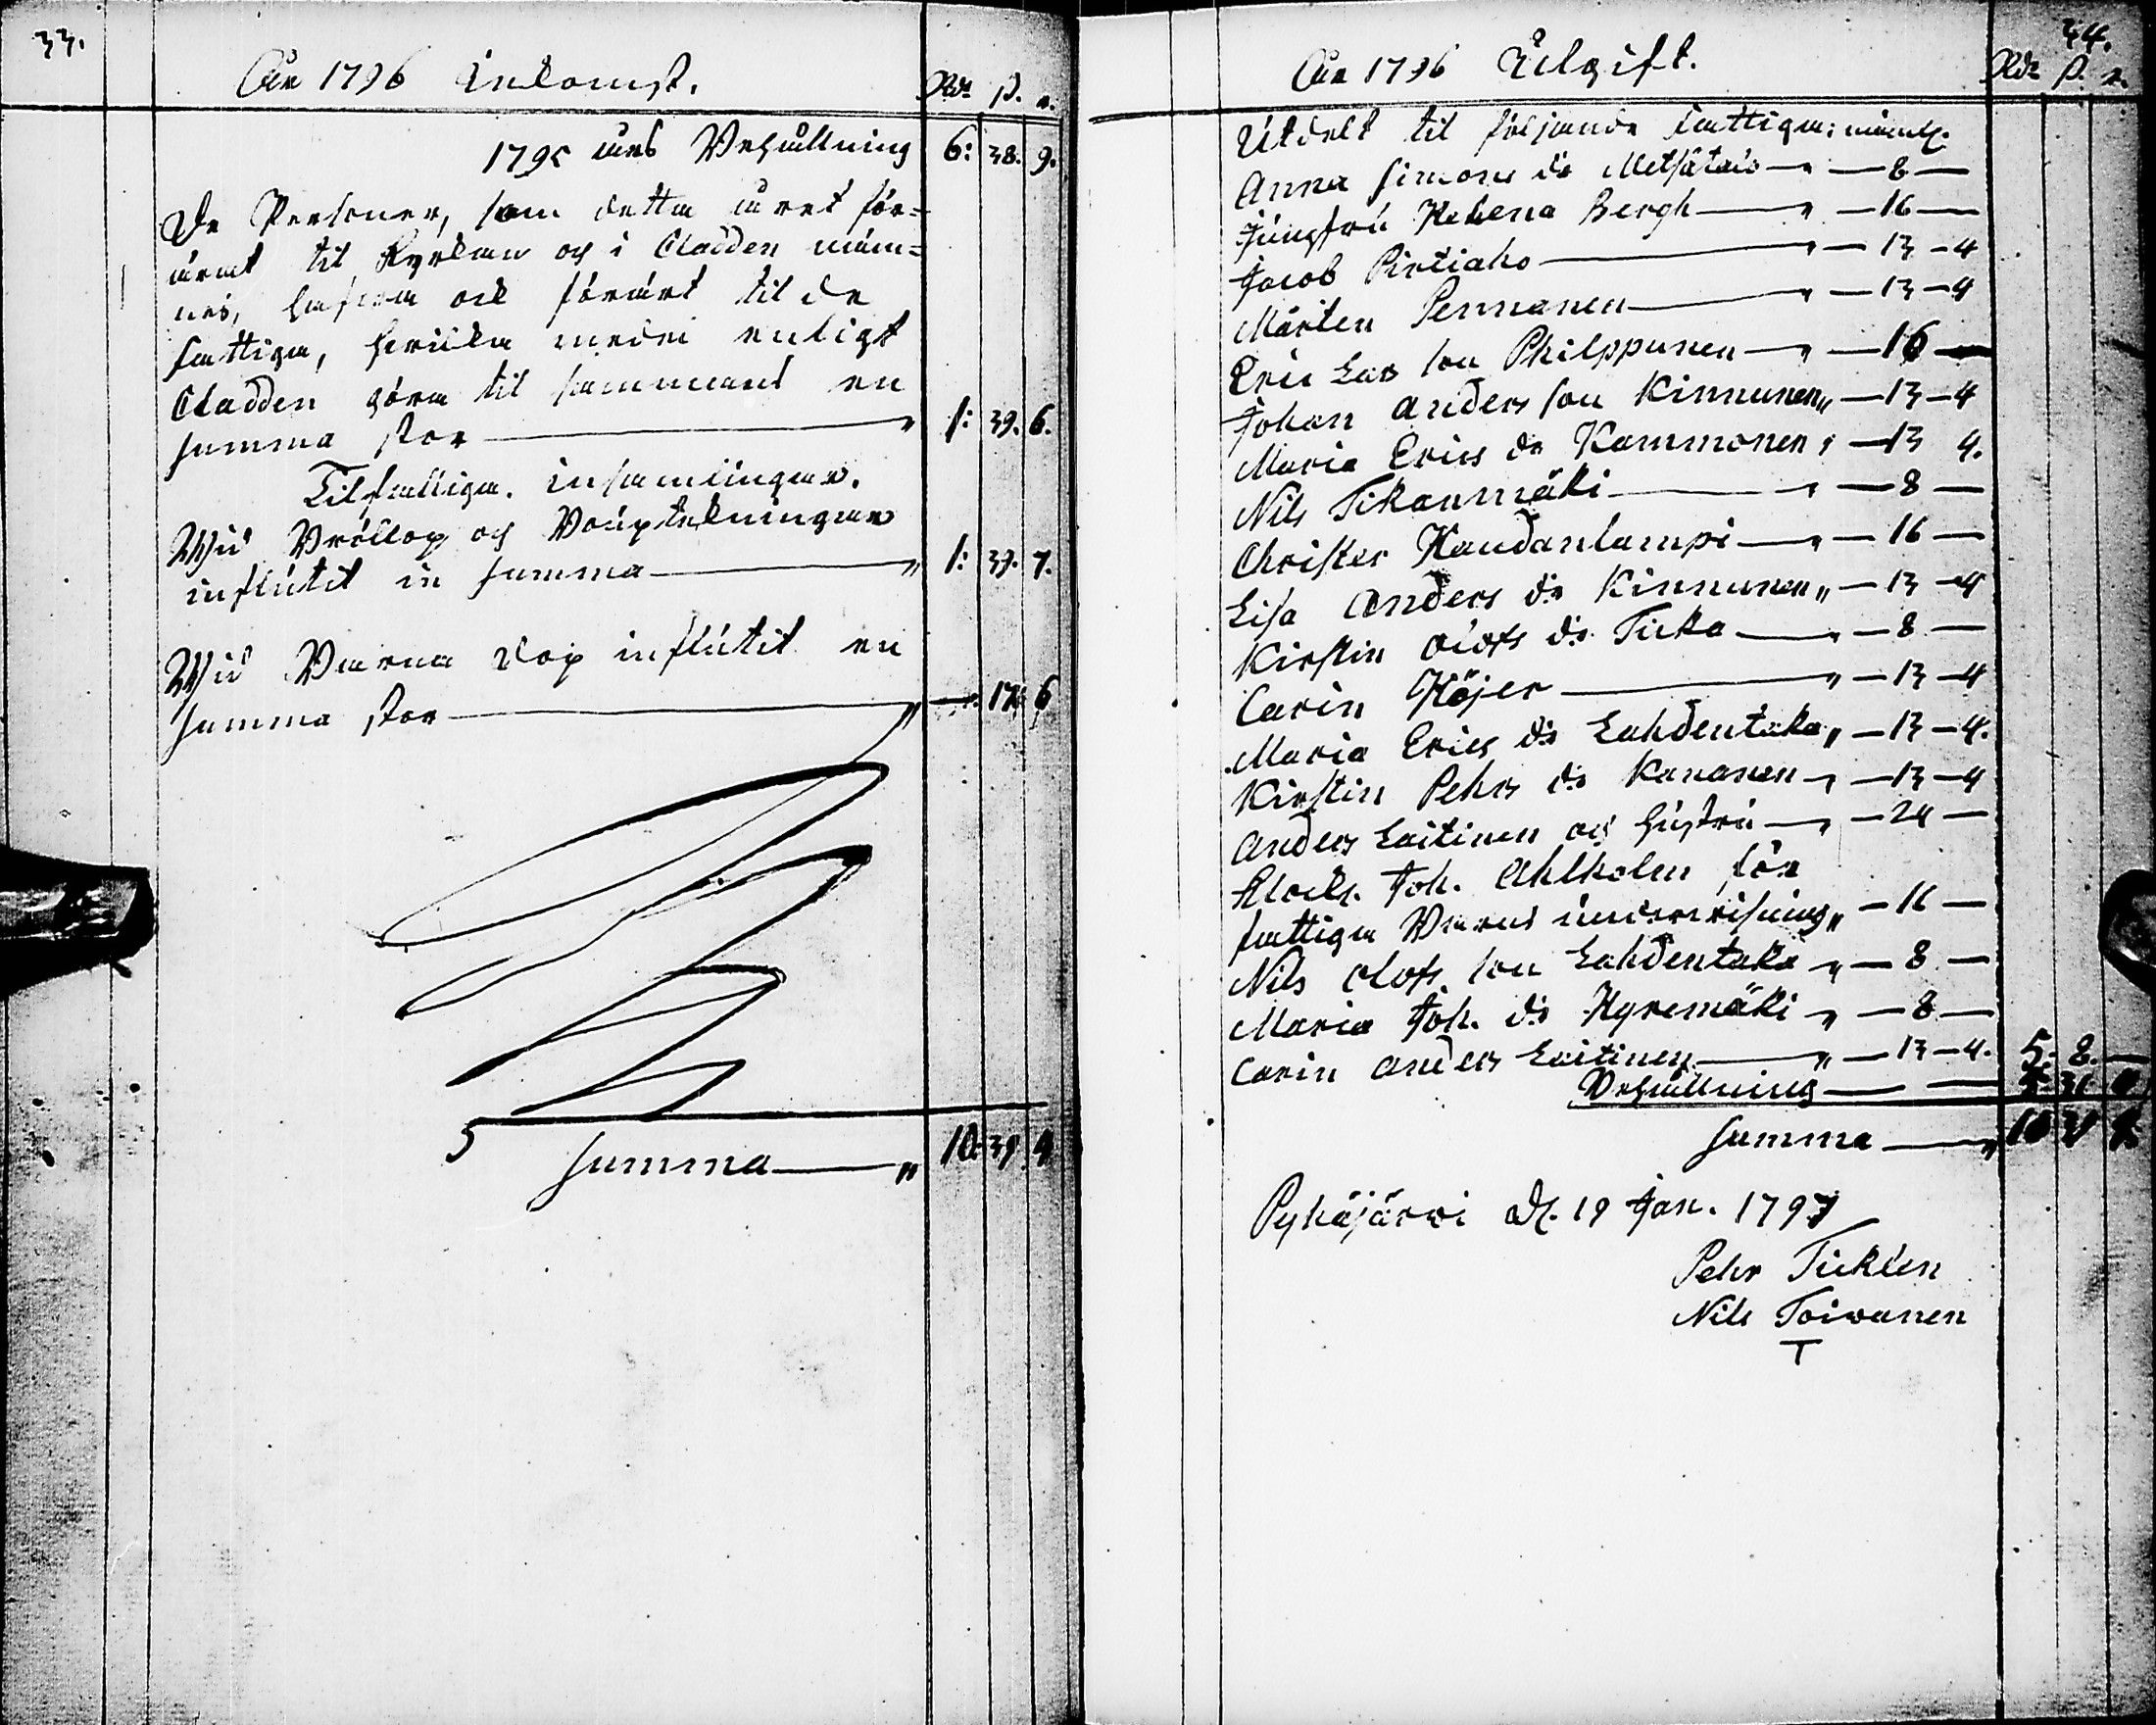 33.
Åår 1796 Inkomst. Rdr ß. r.
1795 års Behållning 6: 38. 9.
De Personer, som detta året för=
ärat til Kyrkan och i Cladden näm=
nas, hafwa ock förärt til de
fattiga, hwilka medel enligt
Cladden göra til sammans en
summa stor 1: 39. 6.
Tilfälliga insamlingar.
Wid Bröllop och Barndop
influtit in summa 1: 39. 7.
Wid Barna dop influtit en
summa stor 17. 6
Summa 10. 39 4
34.
Åår 1796 Utgift. Rdr ß. r.
Utdelt til följande fattiga; nämlß.
Anna Simons dr Metsätais — 8 —
Jungfru Helena Bergh — 16 —
Jacob Pirtiaho — 13 — 4
Mårten Pennanen — 13 — 4
Eric Lars son Philppunen — 16 —
Johan Anders son Kinnunen — 13 — 4
Maria Erics dr Kammonen — 13 4.
Nils Tikanmäki — 8 —
Christer Haudanlampi — 16 —
Lisa Anders dr Kinnunen — 13 — 4
Kirstin Olofs dr Ticka — 8 —
Carin Höjer — 13 — 4
Maria Erics dr Lahdentaka — 13 — 4.
Kirstin Pehrs dr Kananen — 13 — 4
Anders Laitinen och hustru — 24 —
Klock. Joh. Ahlholm för
fattiga Barns underwisning — 16 —
Nils Olofs son Lahdentaka — 8 —
Maria Joh. dr Hyremäki — 8 —
Carin Anders Laitinen — 13 — 4. 5. 8. —
Behållning — 5. 31
Summa — 10
Pyhäjärvi d. 19 Jan. 1797
Pehr Ticklén
Nils Toivanen
T